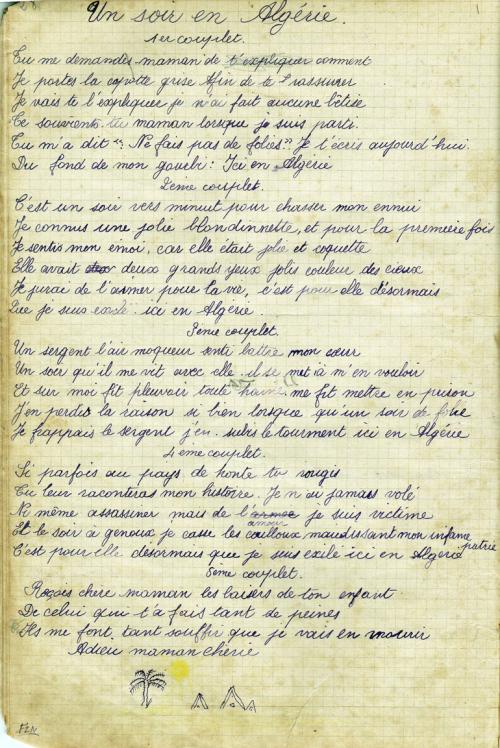 Un soir en Algérie.
1er couplet.
Tu me demandes maman de t'expliquer comment
Je portes la capotte grise Afin de te rassurer
Je vais te l'expliquer je n'ai fait aucune bêtise
Te souvients tu maman lorsque je suis parti.
Tu m'a dit "Ne fais pas de folies" Je l'écris aujourd'hui.
Du fond de mon gourbi: Ici en Algérie
2eme couplet.
C'est un soir vers minuit pour chasser mon ennui
Je connus une jolie blondinnette, et pour la premiere fois
Je sentis mon émoi, car elle était jolie et coquette
Elle avait deux grands yeux jolis couleur des cieux
Je jurai de l'aimer pour la vie, c'est pour elle désormais
Que je suis exilé ici en Algérie.
3eme couplet.
Un sergent l'air moqueur senti battre mon cœur
Un soir qu'il me vit avec elle il se met à m'en vouloir
Et sur moi fit pleuvoir toute haine me fit mettre en prison
J'en perdis la raison si bien lorsque qu'un soir de folie
Je frappais le sergent j'en subis le tourment ici en Algérie
4eme couplet.
Si parfois au pays de honte tu rougis
Tu leur raconteras mon histoire. Je n'ai jamais volé
Ni même assassiner mais de l'amour je suis victime
Et le soir à genoux je casse les cailloux maudissant mon infame patrie
C'est pour elle désormais que je suis exilé ici en Algérie
5eme couplet.
Reçois chere maman les baisers de ton enfant
De celui qui t'a fais tant de peines
Ils me font tant souffrir que je vais en mourir
Adieu maman cherie
FIN